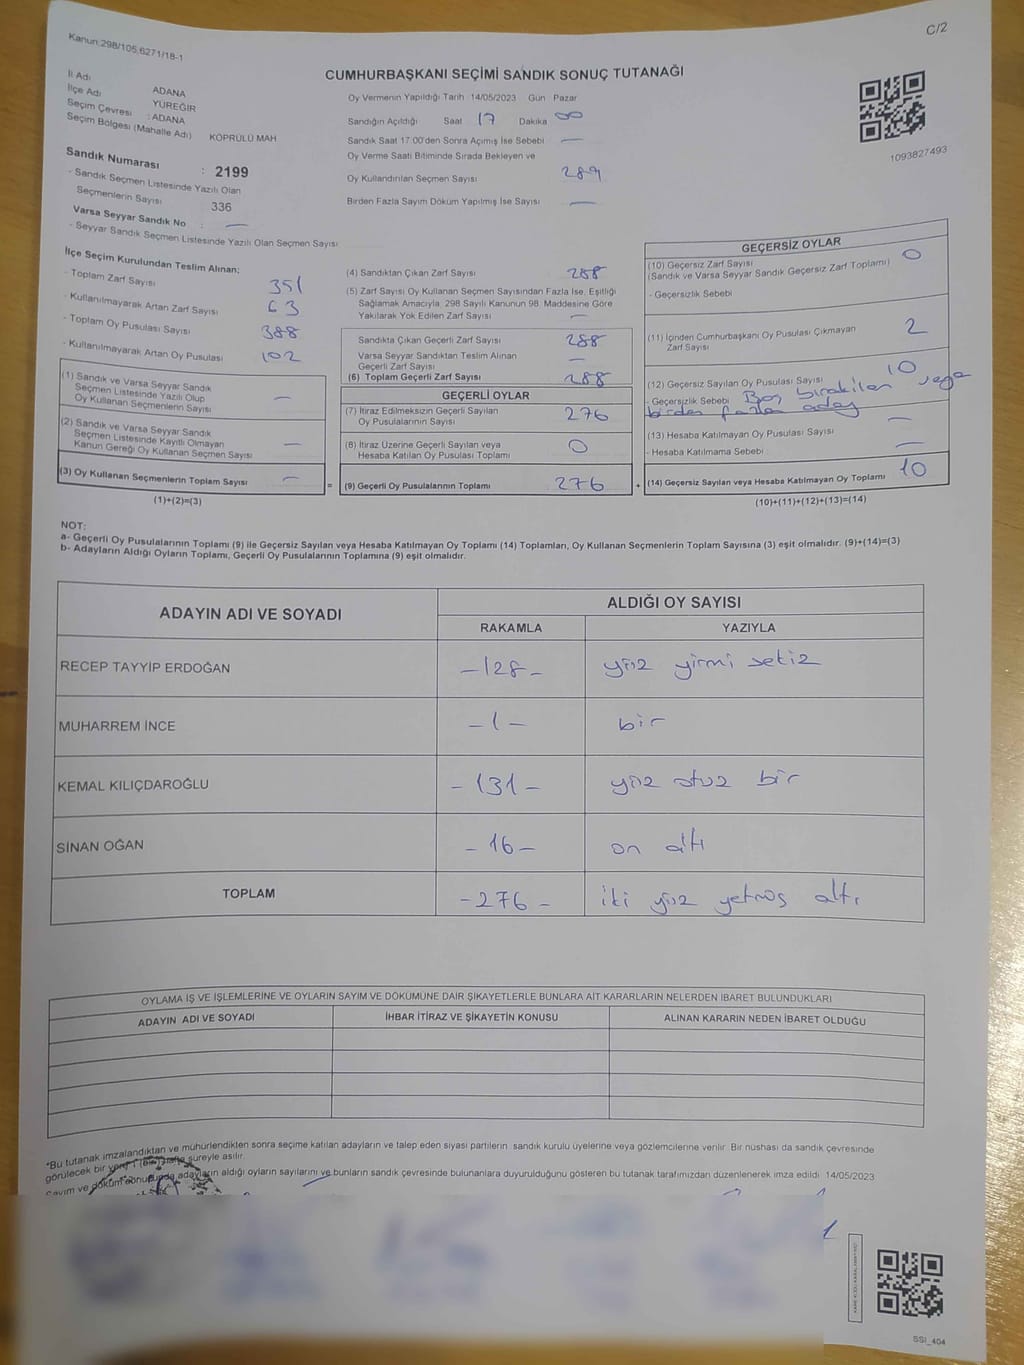 C/2
Kanun:298/105,6271/18-1
CUMHURBAŞKANI SEÇİMİ SANDIK SONUÇ TUTANAĞI
İl Adı ADANA
İlçe Adı YÜREĞİR
Seçim Çevresi : ADANA
Seçim Bölgesi (Mahalle Adı) KÖPRÜLÜ MAH
Sandık Numarası : 2199
- Sandık Seçmen Listesinde Yazılı Olan
Seçmenlerin Sayısı 336
Varsa Seyyar Sandık No : —
- Seyyar Sandık Seçmen Listesinde Yazılı Olan Seçmen Sayısı
Oy Vermenin Yapıldığı Tarih :14/05/2023 Gün Pazar
Sandığın Açıldığı Saat 17 Dakika 00
Sandık Saat 17:00'den Sonra Açımış İse Sebebi —
Oy Verme Saati Bitiminde Sırada Bekleyen ve
Oy Kullandırılan Seçmen Sayısı 289
Birden Fazla Sayım Döküm Yapılmış İse Sayısı —
1093827493
İlçe Seçim Kurulundan Teslim Alınan;
- Toplam Zarf Sayısı 351
- Kullanılmayarak Artan Zarf Sayısı 63
- Toplam Oy Pusulası Sayısı 388
- Kullanılmayarak Artan Oy Pusulası 102
(1) Sandık ve Varsa Seyyar Sandık
Seçmen Listesinde Yazılı Olup
Oy Kullanan Seçmenlerin Sayısı —
(2) Sandık ve Varsa Seyyar Sandık
Seçmen Listesinde Kayıtlı Olmayan
Kanun Gereği Oy Kullanan Seçmen Sayısı —
(3) Oy Kullanan Seçmenlerin Toplam Sayısı —
(1)+(2)=(3)
=
(4) Sandıktan Çıkan Zarf Sayısı 288
(5) Zarf Sayısı Oy Kullanan Seçmen Sayısından Fazla İse, Eşitliği
Sağlamak Amacıyla, 298 Sayılı Kanunun 98. Maddesine Göre
Yakılarak Yok Edilen Zarf Sayısı —
Sandıkta Çıkan Geçerli Zarf Sayısı 288
Varsa Seyyar Sandıktan Teslim Alınan
Geçerli Zarf Sayısı —
(6) Toplam Geçerli Zarf Sayısı 288
GEÇERLİ OYLAR
(7) İtiraz Edilmeksizin Geçerli Sayılan
Oy Pusulalarının Sayısı 276
(8) İtiraz Üzerine Geçerli Sayılan veya
Hesaba Katılan Oy Pusulası Toplamı 0
(9) Geçerli Oy Pusulalarının Toplamı 276
+
GEÇERSİZ OYLAR
(10) Geçersiz Zarf Sayısı 0
(Sandık ve Varsa Seyyar Sandık Geçersiz Zarf Toplamı)
- Geçersizlik Sebebi
(11) İçinden Cumhurbaşkanı Oy Pusulası Çıkmayan
Zarf Sayısı 2
(12) Geçersiz Sayılan Oy Pusulası Sayısı 10
- Geçersizlik Sebebi Boş bırakılan veya
birden fazla aday
(13) Hesaba Katılmayan Oy Pusulası Sayısı —
- Hesaba Katılmama Sebebi —
(14) Geçersiz Sayılan veya Hesaba Katılmayan Oy Toplamı 10
(10)+(11)+(12)+(13)=(14)
NOT:
a- Geçerli Oy Pusulalarının Toplamı (9) ile Geçersiz Sayılan veya Hesaba Katılmayan Oy Toplamı (14) Toplamları, Oy Kullanan Seçmenlerin Toplam Sayısına (3) eşit olmalıdır. (9)+(14)=(3)
b- Adayların Aldığı Oyların Toplamı, Geçerli Oy Pusulalarının Toplamına (9) eşit olmalıdır.
ADAYIN ADI VE SOYADI ALDIĞI OY SAYISI
RAKAMLA YAZIYLA
RECEP TAYYİP ERDOĞAN -128- yüz yirmi sekiz
MUHARREM İNCE -1- bir
KEMAL KILIÇDAROĞLU -131- yüz otuz bir
SİNAN OĞAN -16- on altı
TOPLAM -276- iki yüz yetmiş altı
OYLAMA İŞ VE İŞLEMLERİNE VE OYLARIN SAYIM VE DÖKÜMÜNE DAİR ŞİKAYETLERLE BUNLARA AİT KARARLARIN NELERDEN İBARET BULUNDUKLARI
ADAYIN ADI VE SOYADI İHBAR İTİRAZ VE ŞİKAYETİN KONUSU ALINAN KARARIN NEDEN İBARET OLDUĞU
*Bu tutanak imzalandıktan ve mühürlendikten sonra seçime katılan adayların ve talep eden siyasi partilerin sandık kurulu üyelerine veya gözlemcilerine verilir. Bir nüshası da sandık çevresinde
görülecek bir yere 1 (bir) hafta süreyle asılır.
Sayım ve döküm sonucunda adayların aldığı oyların sayılarını ve bunların sandık çevresinde bulunanlara duyurulduğunu gösteren bu tutanak tarafımızdan düzenlenerek imza edildi 14/05/2023
SSI_404